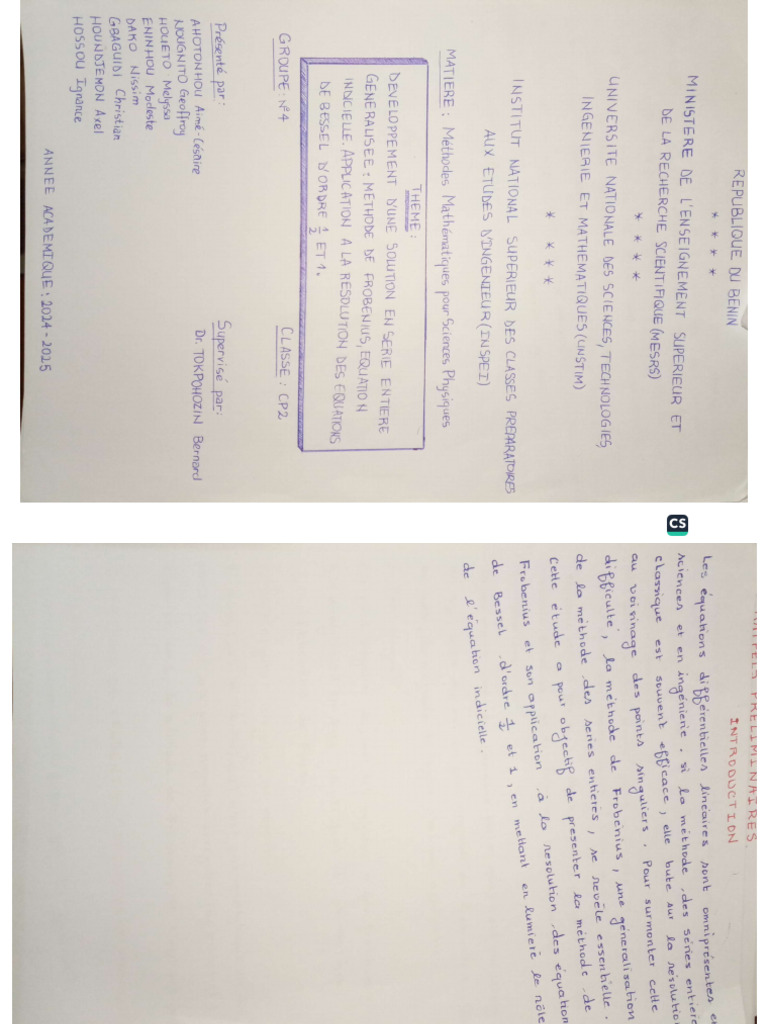 REPUBLIQUE DU BENIN
* * * *
MINISTERE DE L'ENSEIGNEMENT SUPERIEUR ET
DE LA RECHERCHE SCIENTIFIQUE (MESRS)
* * * *
UNIVERSITE NATIONALE DES SCIENCES, TECHNOLOGIES,
INGENIERIE ET MATHEMATIQUES (UNSTIM)
* * * *
INSTITUT NATIONAL SUPERIEUR DES CLASSES PREPARATOIRES
AUX ETUDES D'INGENIEUR (INSPEI)
MATIERE : Méthodes Mathématiques pour Sciences Physiques
THEME :
DEVELOPPEMENT D'UNE SOLUTION EN SERIE ENTIERE
GENERALISEE : METHODE DE FROBENIUS, EQUATION
INDICIELLE. APPLICATION A LA RESOLUTION DES EQUATIONS
DE BESSEL D'ORDRE 1/2 ET 1.
GROUPE : N°4 CLASSE : CP2
Présenté par : Supervisé par :
AHOTONHOU Aimé-Césaire Dr. TOKPOHOZIN Bernard
NOUGNITO Geoffroy
HOUETO Melyssa
ENINHOU Modeste
DAKO Nissim
GBAGUIDI Christian
HOUNDJEMON Axel
HOSSOU Ignance
ANNEE ACADEMIQUE : 2024 - 2025
CS
PRELIMINAIRES
INTRODUCTION
Les équations différentielles linéaires sont omniprésentes en
sciences et en ingénierie. si la méthode des séries entiere
classique est souvent efficace, elle bute sur la résolution
au voisinage des points singuliers. Pour surmonter cette
difficulté, la méthode de Frobénius, une géneralisation
de la méthode des series entieres, se revèle essentielle.
Cette étude a pour objectif de presenter la méthode de
Frobenius et son application à la resolution des équation
de Bessel d'ordre 1/2 et 1, en mettant en lumieré le rôle
de l'équation indicielle.